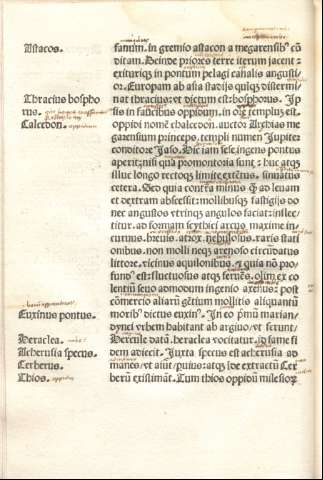 Astacos.
Thracius bospho
rus.
Calcedon.
Euxinus pontus.
Heraclea.
Acherusia specus.
Cerberus.
Thios.
fanum. in gremio astacon a megarensibꝰ cō
ditam. Deinde priores terre iterum iacent:
exituriqꝫ in pontum pelagi canalis angusti
or. Europam ab asia stadijs quīqꝫ distermi
nat thracius: et dictum est: bosphorus. Ip
sis in faucibus oppidum. in ore templū est:
oppidi nomē chalcedon. auctor Archias me
garensium princeps. templi numen Jupiter
conditore Jaso. Hic iam sese ingens pontus
aperit: nisi qua promontoria sunt: huc atqꝫ
illuc longo rectoqꝫ limite extētus. sinuatus
cetera. Sed quia contra minus qꝫ ad leuam
et dextram abscessit: mollibusqꝫ fastigijs do
nec angustos vtrinqꝫ angulos faciat: inflec
titur. ad formam scythici arcus maxime in
curuus. breuis. atrox. nebulosus. raris stati
onibus. non molli neqꝫ arenoso circūdatus
littore. vicinus aquilonibus. et quia nō pro
fundꝰ est: fluctuosus atqꝫ feruēs. olim ex co
lentiū seuo admodum ingenio axenus: post
cōmercio aliarū gētium mollitis aliquantū
moribꝰ dictus euxinꝰ. In eo pmū marian/
dynei vrbem habitant ab argiuo/ et ferunt/
Hercule datā. heraclea vocitatur. id fame fi
dem adiecit. Juxta specus est acherusia ad
manes/ et aiūt/ puius: atqꝫ īde extractū Cer
berū existimāt. Tum thios oppidū milesioꝝ